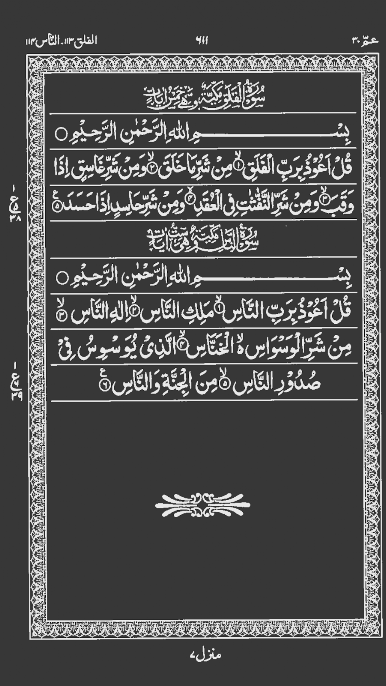 عمّ ٣٠ ٦١١ الفلق ١١٣۔الناس ١١٤
سُوْرَةُ الْفَلَقِ مَكِّيَّةٌ وَّهِيَ خَمْسُ اٰيَاتٍ
بِسْمِ اللهِ الرَّحْمٰنِ الرَّحِيْمِ ○
قُلْ اَعُوْذُ بِرَبِّ الْفَلَقِ ۙ۱ مِنْ شَرِّ مَا خَلَقَ ۙ۲ وَمِنْ شَرِّ غَاسِقٍ اِذَا
وَقَبَ ۙ۳ وَمِنْ شَرِّ النَّفّٰثٰتِ فِى الْعُقَدِ ۙ۴ وَمِنْ شَرِّ حَاسِدٍ اِذَا حَسَدَ ۵ع
سُوْرَةُ النَّاسِ مَكِّيَّةٌ وَّهِيَ سِتُّ اٰيَاتٍ
بِسْمِ اللهِ الرَّحْمٰنِ الرَّحِيْمِ ○
قُلْ اَعُوْذُ بِرَبِّ النَّاسِ ۙ۱ مَلِكِ النَّاسِ ۙ۲ اِلٰهِ النَّاسِ ۙ۳
مِنْ شَرِّ الْوَسْوَاسِ ۵ۙ الْخَنَّاسِ ۴ۙ الَّذِىْ يُوَسْوِسُ فِىْ
صُدُوْرِ النَّاسِ ۙ۵ مِنَ الْجِنَّةِ وَالنَّاسِ ۶ع
منزل ٧